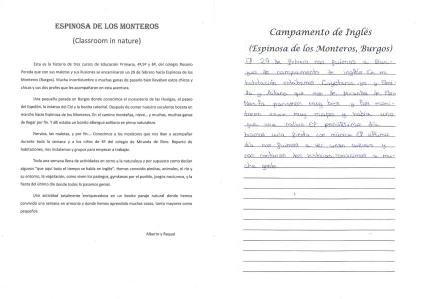 ESPINOSA DE LOS MONTEROS
(Classroom in nature)
Esta es la historia de tres cursos de Educación Primaria, 4º,5º y 6º, del colegio Rosario
Pereda que con sus maletas y sus ilusiones se encaminaron un 29 de febrero hacia Espinosa de los
Monteros (Burgos). Mucha incertidumbre y muchas ganas de pasarlo bien llevaban estos chicos y
chicas y sus dos profes que les acompañaron en esta aventura.
Una pequeña parada en Burgos donde conocimos el monasterio de las Huelgas, el paseo
del Espolón, la estatua del Cid y la bonita catedral. Después de comer nuestra caravana bocata en
marcha hacia Espinosa de los Monteros. En el camino montañas, nieve, y muchas, muchas ganas
de llegar por fin. Y allí estaba un bonito albergue solitario en plena naturaleza.
Nervios, las maletas, y por fin.. Conocimos a los monitores que nos iban a acompañar
durante toda la semana y a los niños de 6º del colegio de Miranda de Ebro. Reparto de
habitaciones, nos instalamos y grupos para empezar a trabajar.
Toda una semana llena de actividades en torno a la naturaleza y por supuesto como decían
algunos "que aquí todo el tiempo se habla en inglés". Hemos conocido plantas, animales, el río y
su entorno, la vegetación, como viven los pasiegos, gymkanas por el pueblo, juegos nocturnos, y la
fiesta del último día donde todos lo pasamos genial.
Una actividad totalmente enriquecedora en un bonito paraje natural donde hemos
convivido una semana en armonía y donde hemos aprendido muchas cosas, tanto mayores como
pequeños.
Alberto y Raquel
Campamento de Inglés
(Espinosa de los Monteros, Burgos)
El 29 de febrero nos fuimos a Bur-
gos de campamento de inglés. En mi
habitación estábamos
y
eran muy majos y había una
que nos El penúltimo día
una fiesta con música. El último
día nos fuimos a ver
cho gente.